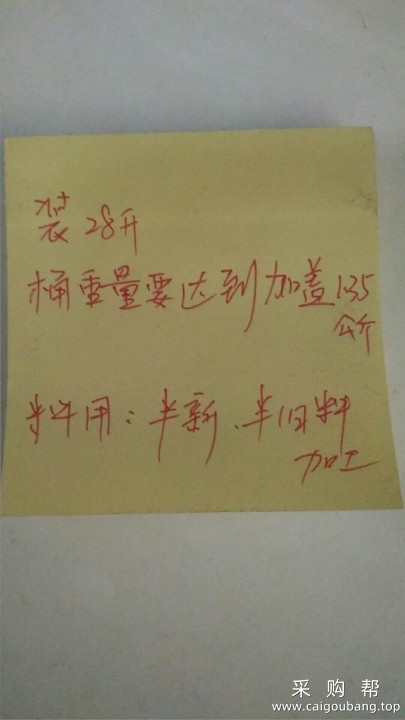 装28升
桶重量要达到加盖1.35
公斤
料用:半新、半旧料
加工
采购帮
www.caigoubang.top